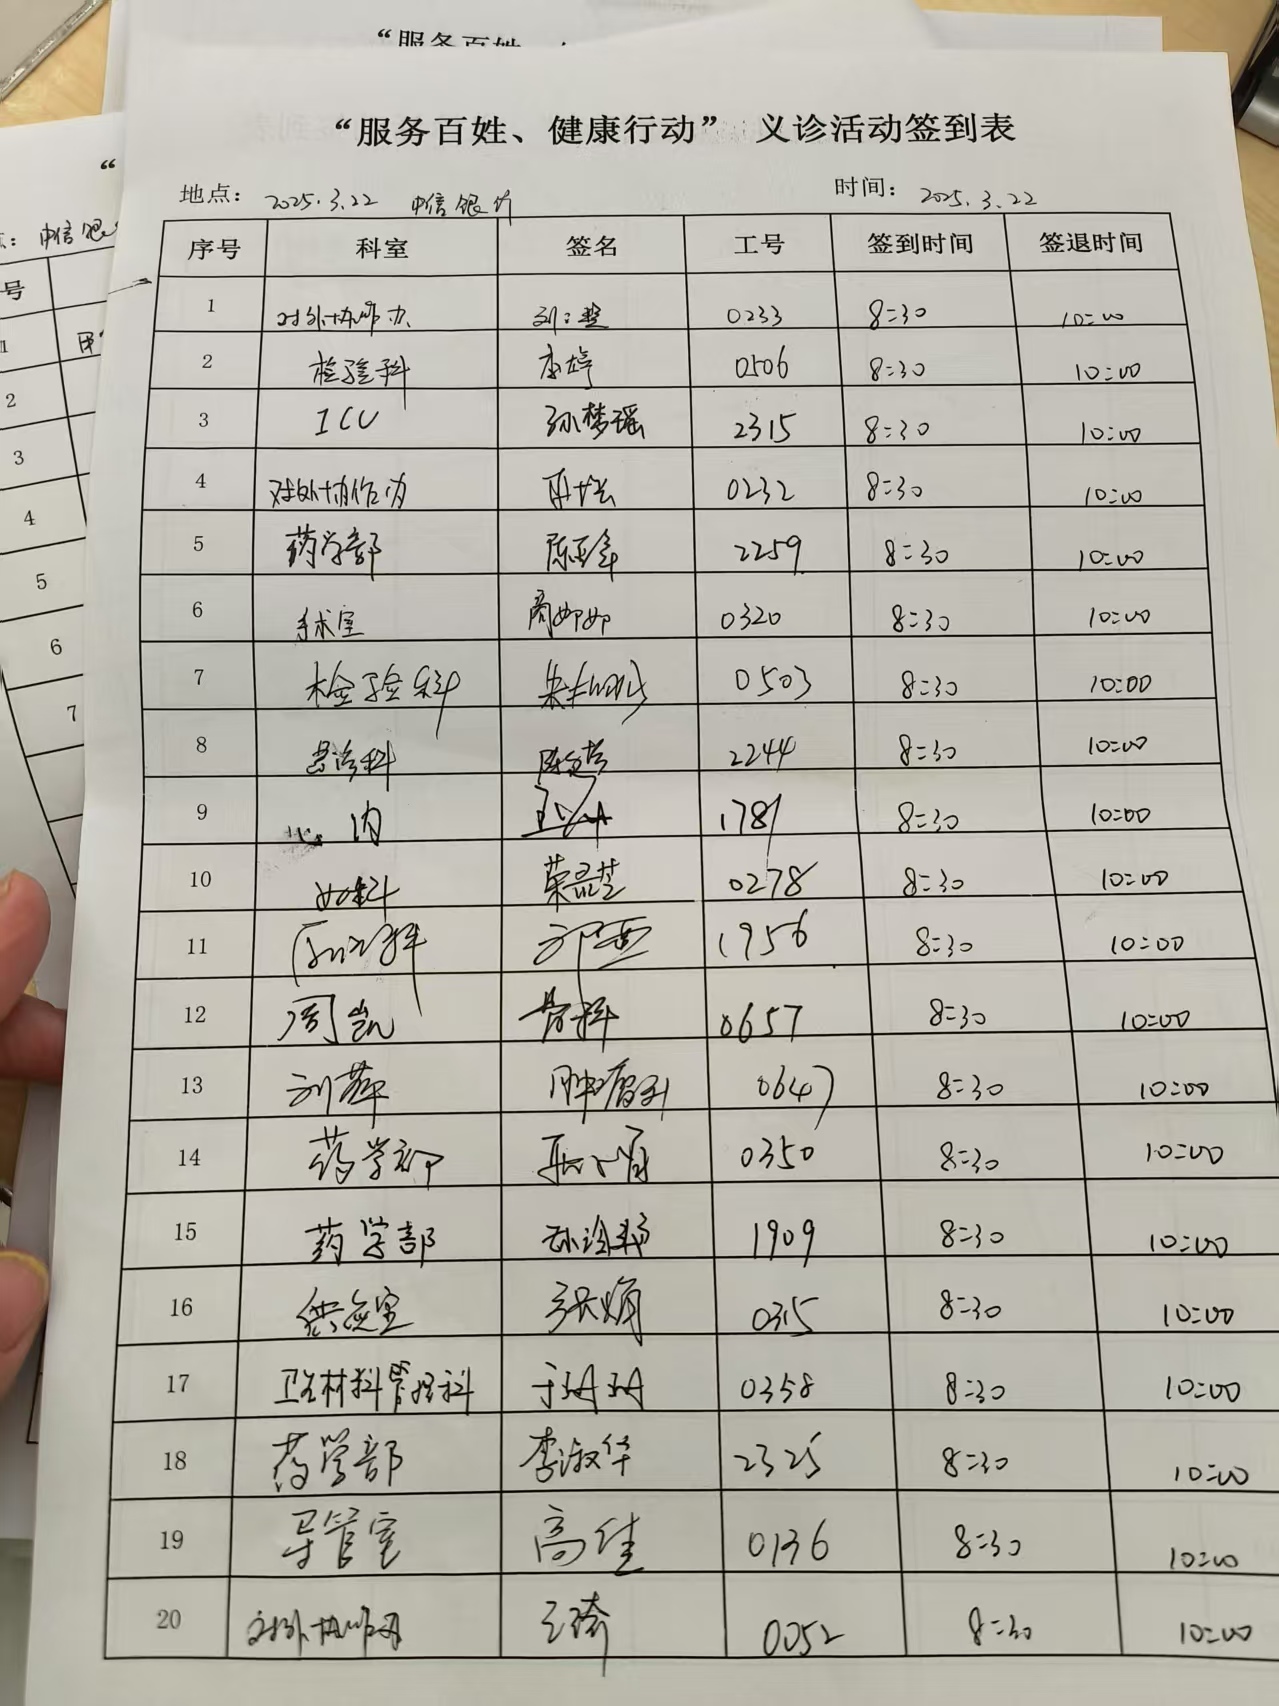 “服务百姓、
“服务百姓、健康行动” 义诊活动签到表
地点: 2025.3.22 中信银行 时间: 2025.3.22
序号 科室 签名 工号 签到时间 签退时间
1 对外协作办 0233 8:30 10:00
2 检验科 李婷 0506 8:30 10:00
3 ICU 孙梦瑶 2315 8:30 10:00
4 对外协作办 0232 8:30 10:00
5 药学部 2259 8:30 10:00
6 手术室 0320 8:30 10:00
7 检验科 0503 8:30 10:00
8 急诊科 2244 8:30 10:00
9 内 1781 8:30 10:00
10 妇科 0278 8:30 10:00
11 1956 8:30 10:00
12 周凯 骨科 0657 8:30 10:00
13 刘萍 肿瘤科 0647 8:30 10:00
14 药学部 0350 8:30 10:00
15 药学部 1909 8:30 10:00
16 供应室 张娟 0315 8:30 10:00
17 卫生材料管理科 于珊珊 0358 8:30 10:00
18 药学部 李淑华 2325 8:30 10:00
19 导管室 高佳 0136 8:30 10:00
20 对外协作办 王琦 0052 8:30 10:00
“
: 中信银
号
1
2
3
4
5
6
7